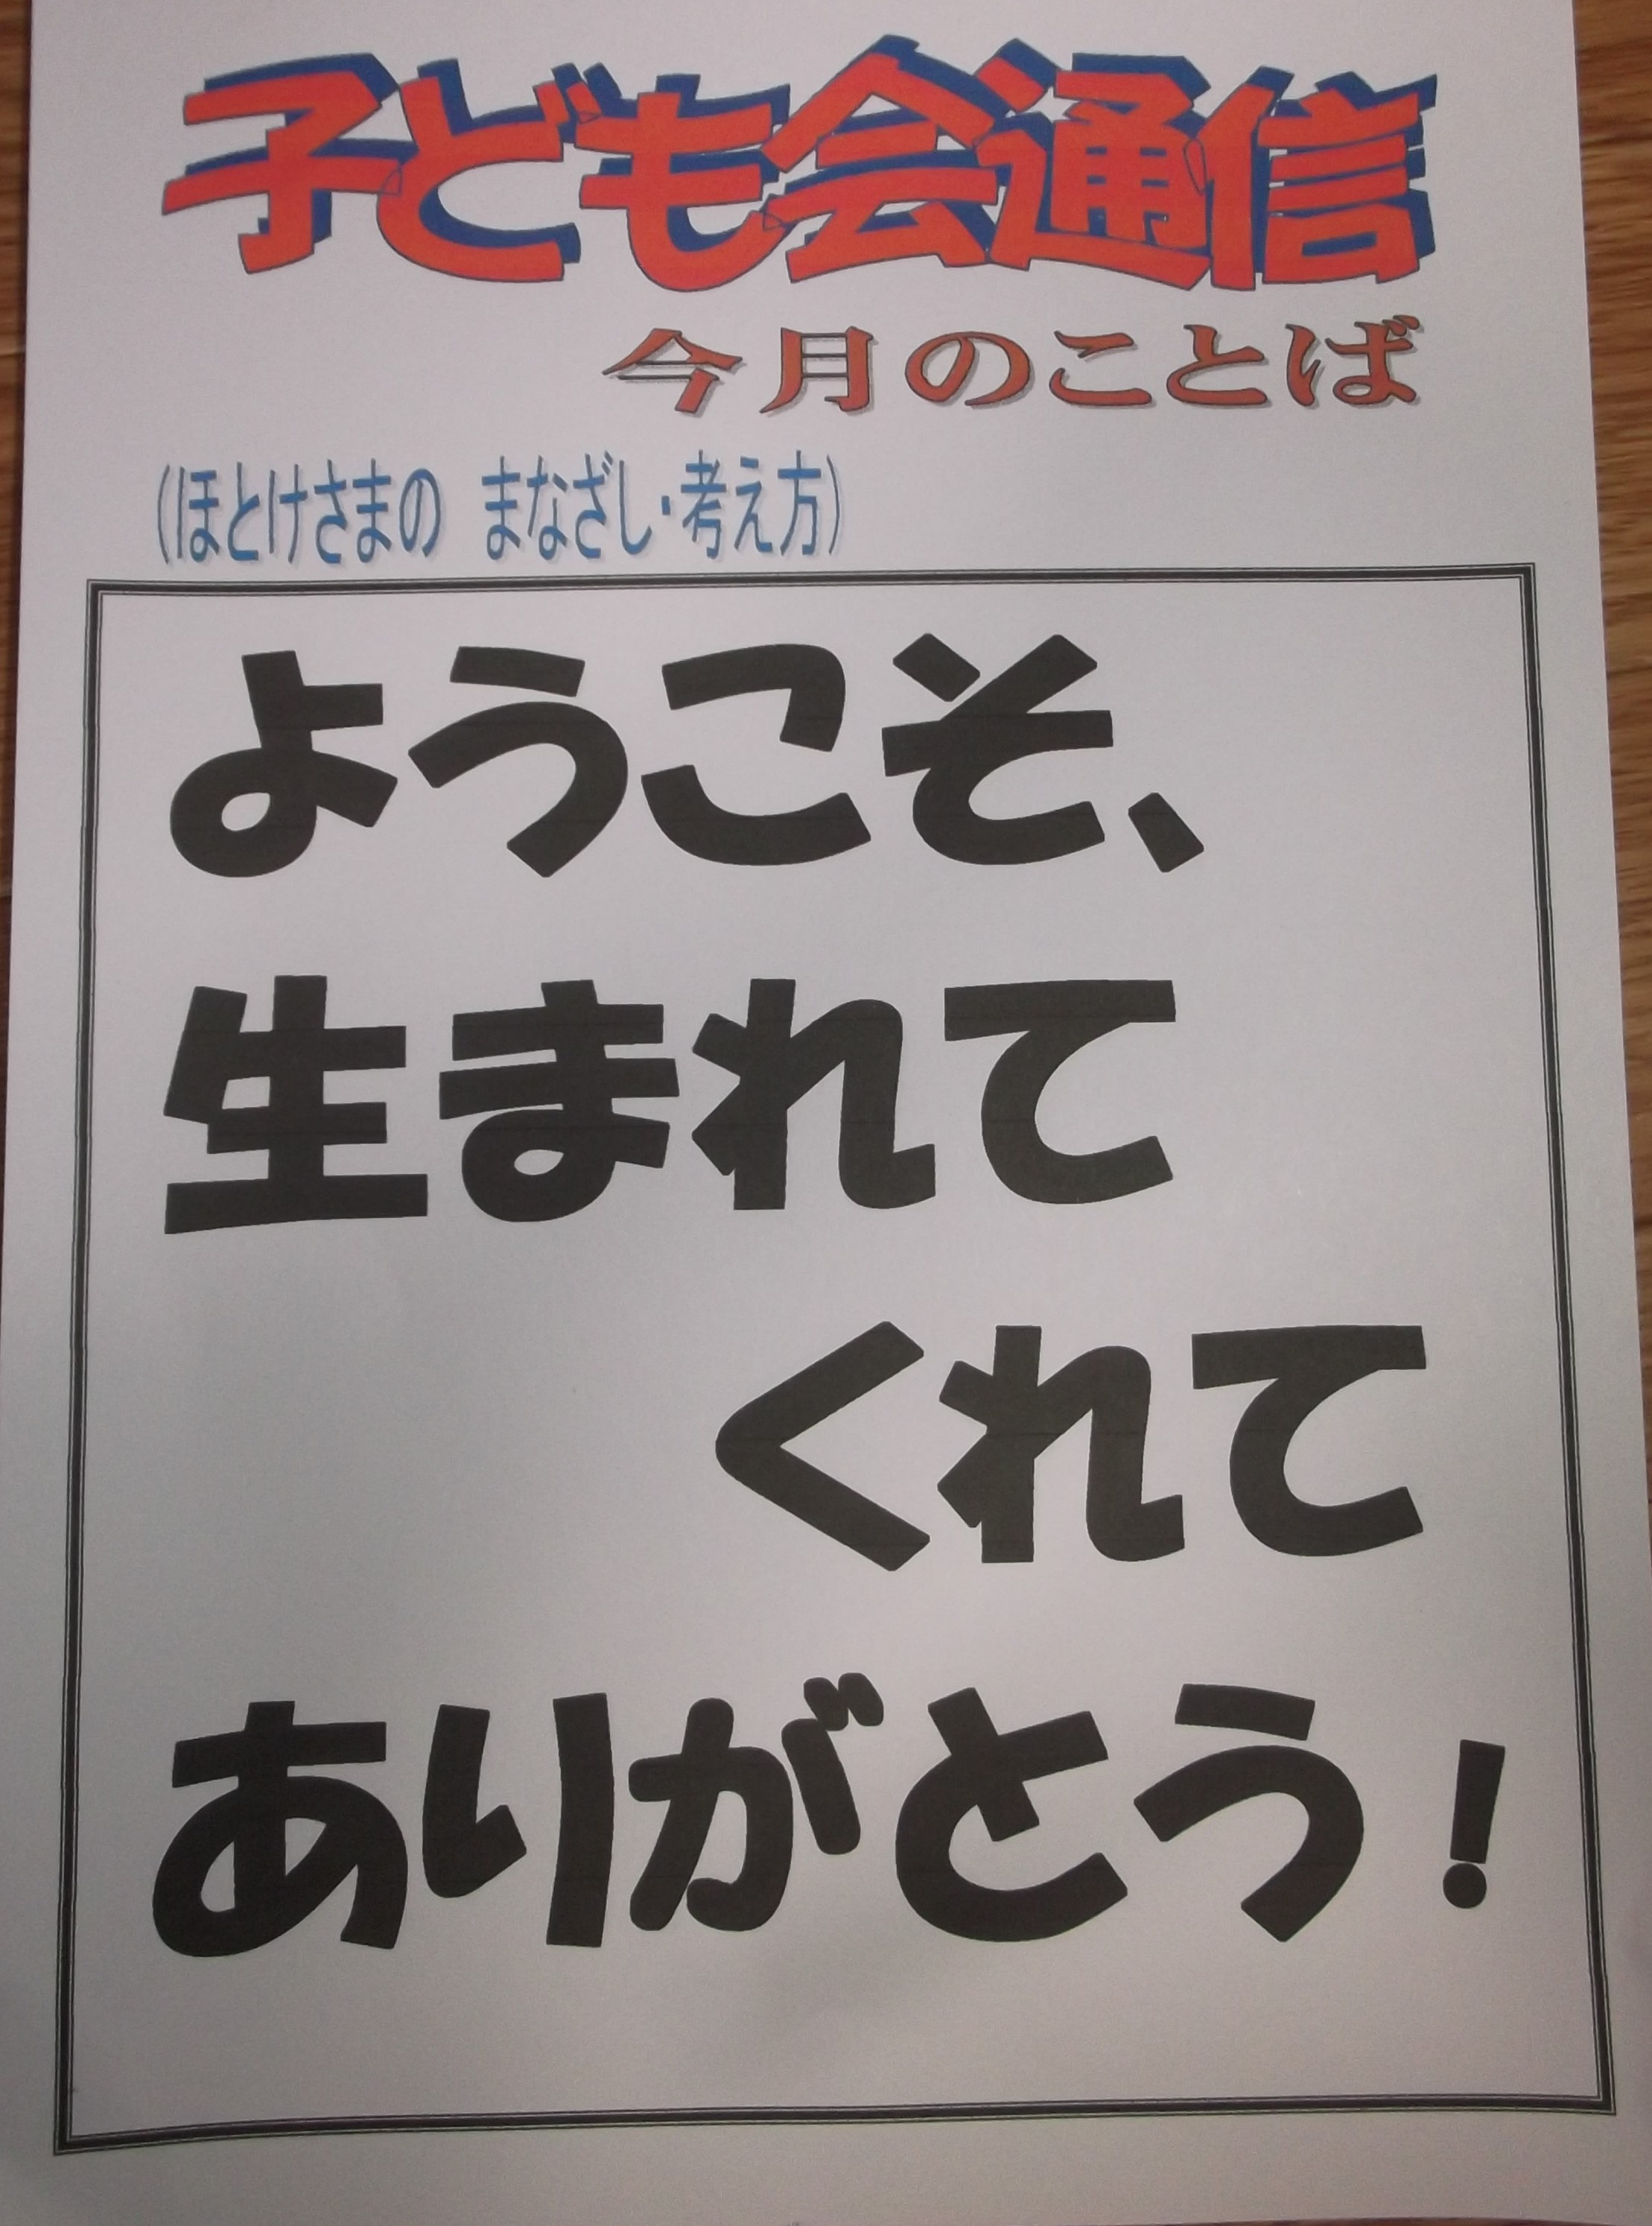 子ども会通信
今月のことば
(ほとけさまの　まなざし・考え方)
ようこそ、
生まれて
くれて
ありがとう!